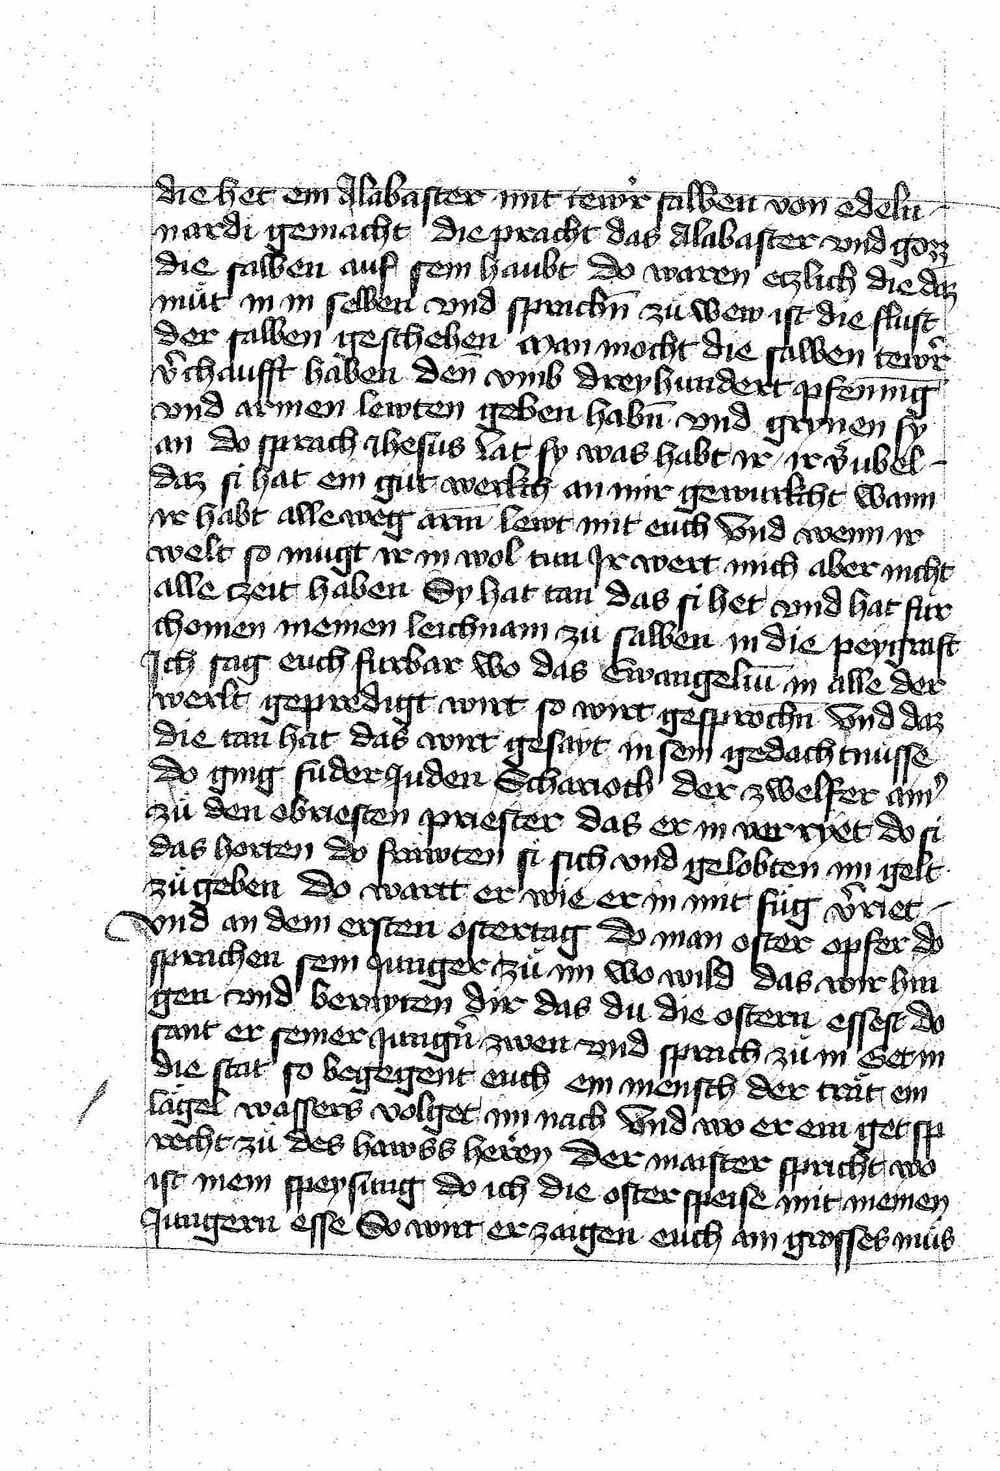 die het ein Alabaster mit tewr̉ salben von edeln
nardi gemacht die pracht das Alabaster vnd gozz
die salben auf sein haubt Do waren etzlich die daz
müt in in selben vnd sprachn̄ zu wew ist die flust
der salben geschehen Man mocht die salben tewr̉
v̉chaufft haben den̄ vmb dreyhundert pfenni̅g
vnd armen lewten geben habn̄ vnd grynen sy
an do sprach ihesus Lat sy was habt ir ir v̉ubel
daz si hat ein güt werkch an mir gewurkcht Wann
ir habt alleweg arm̄ lewt mit euch Vnd wenn ir
welt so mugt ir in wol tun Ir wert mich aber nicht
alle czeit haben Sy hat tan das si het vnd hat für
chomen meinen leichnam zü salben in die peygraft
Ich sag euch furbar wo das Ewangeliu̅ in alle der
werlt gepredigt wirt so wirt gesprochn̄ Vnd daz
die tan hat das wirt gesayt in sein gedachtnüsse
Do ging fuder Juden Scharioth der zwelfer ain̉
zü den obristen priester das er in verryet do si
das horten do frawten si sich vnd gelobten im gelt
zügeben Do wartt er wie er in mit füg v̉riet
vnd an dem ersten ostertag Do man oster opfer do
sprachen sein Junger zü im Wo wild das wir hin
gen vnd berayten dir das du die ostern essest do
sant er seiner Jungn̉ zwen vnd sprach zü in Get in
die stat so begegent euch ein mensch der trät ein
lägel wassers volget im nach Vnd wo er ein get sp
recht zü des hawss heren Der maister spricht wo
ist mein speysung do ich die osterspeise mit meinen
Jungern esse So wirt er zaigen euch ain grosses müs